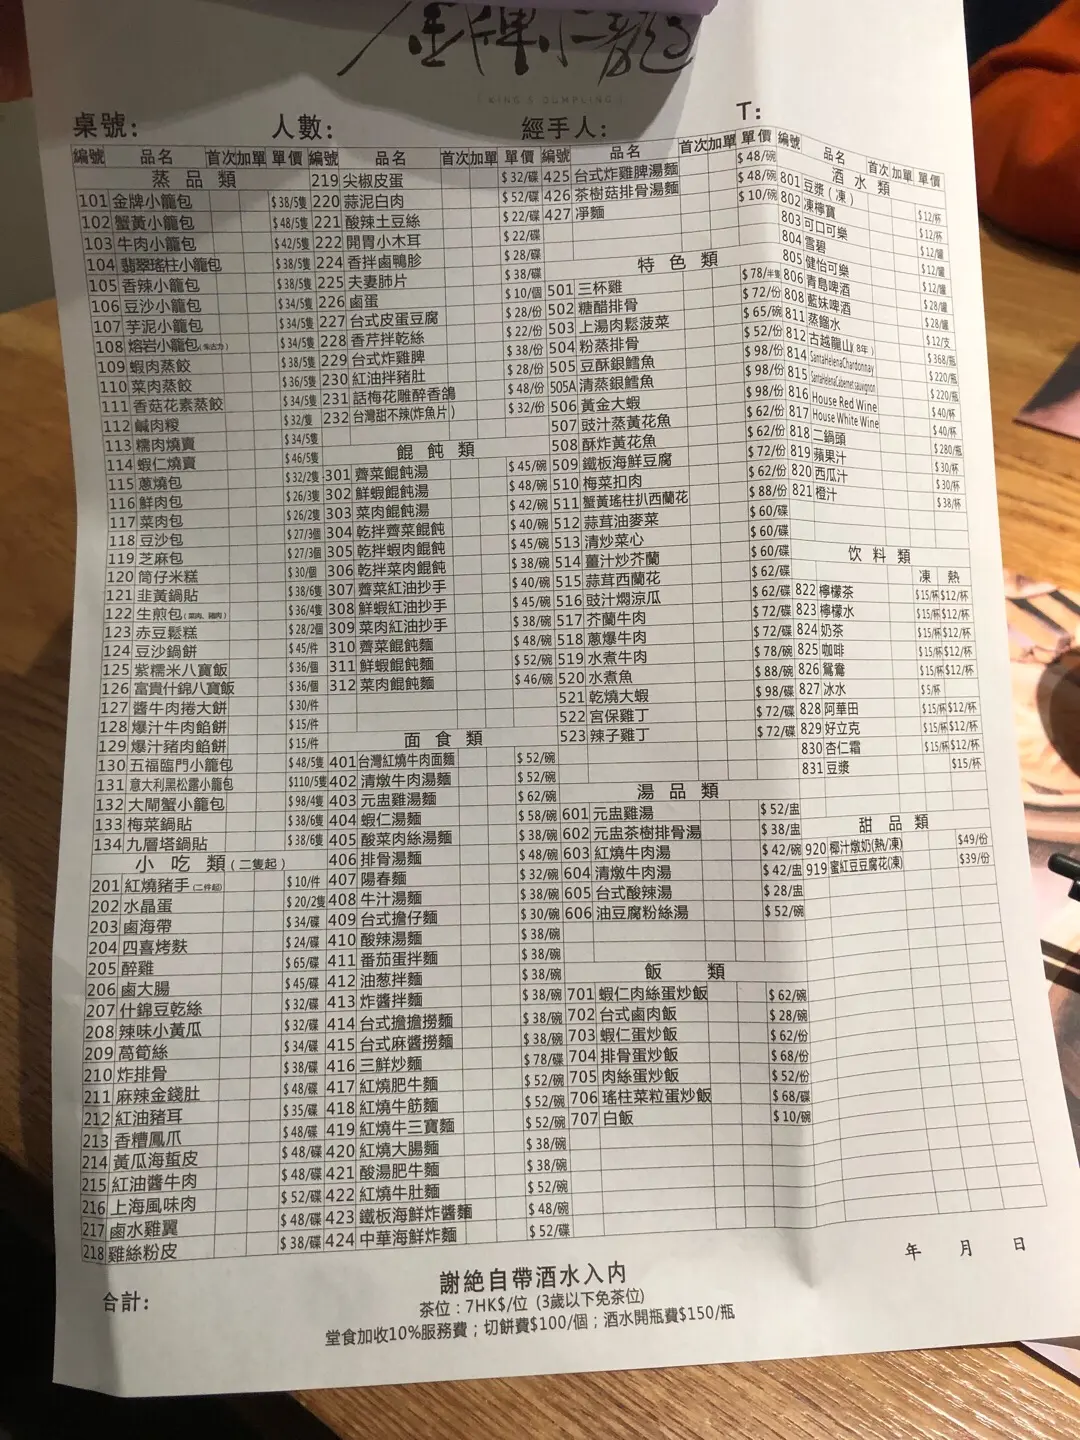 金牌小籠包
KING'S DUMPLING
桌號: 人數: 經手人: T:
編號 品名 首次 加單 單價
蒸品類
101 金牌小籠包 $38/5隻
102 蟹黃小籠包 $48/5隻
103 牛肉小籠包 $42/5隻
104 翡翠瑤柱小籠包 $38/5隻
105 香辣小籠包 $38/5隻
106 豆沙小籠包 $34/5隻
107 芋泥小籠包 $34/5隻
108 熔岩小籠包(朱古力) $34/5隻
109 蝦肉蒸餃 $38/5隻
110 菜肉蒸餃 $36/5隻
111 香菇花素蒸餃 $34/5隻
112 鹹肉糉 $32/隻
113 糯肉燒賣 $34/5隻
114 蝦仁燒賣 $46/5隻
115 蔥燒包 $32/2隻
116 鮮肉包 $26/3隻
117 菜肉包 $26/2隻
118 豆沙包 $27/3個
119 芝麻包 $27/3個
120 筒仔米糕 $30/個
121 韭黃鍋貼 $38/6隻
122 生煎包(菜肉、豬肉) $36/4隻
123 赤豆鬆糕 $28/2個
124 豆沙鍋餅 $45/件
125 紫糯米八寶飯 $36/個
126 富貴什錦八寶飯 $36/個
127 醬牛肉捲大餅 $30/件
128 爆汁牛肉餡餅 $15/件
129 爆汁豬肉餡餅 $15/件
130 五福臨門小籠包 $48/5隻
131 意大利黑松露小籠包 $110/5隻
132 大閘蟹小籠包 $98/4隻
133 梅菜鍋貼 $38/6隻
134 九層塔鍋貼 $38/6隻
小吃類(二隻起)
201 紅燒豬手(二件起) $10/件
202 水晶蛋 $20/2隻
203 鹵海帶 $34/碟
204 四喜烤麩 $24/碟
205 醉雞 $65/碟
206 鹵大腸 $45/碟
207 什錦豆乾絲 $32/碟
208 辣味小黃瓜 $32/碟
209 萵筍絲 $34/碟
210 炸排骨 $38/碟
211 麻辣金錢肚 $48/碟
212 紅油豬耳 $35/碟
213 香糟鳳爪 $48/碟
214 黃瓜海蜇皮 $48/碟
215 紅油醬牛肉 $48/碟
216 上海風味肉 $52/碟
217 鹵水雞翼 $48/碟
218 雞絲粉皮 $38/碟
編號 品名 首次 加單 單價
219 尖椒皮蛋 $32/碟
220 蒜泥白肉 $52/碟
221 酸辣土豆絲 $22/碟
222 開胃小木耳 $22/碟
224 香拌鹵鴨胗 $28/碟
225 夫妻肺片 $38/碟
226 鹵蛋 $10/個
227 台式皮蛋豆腐 $28/份
228 香芹拌乾絲 $22/份
229 台式炸雞脾 $38/份
230 紅油拌豬肚 $28/份
231 話梅花雕醉香鴿 $48/份
232 台灣甜不辣(炸魚片) $32/份
餛飩類
301 薺菜餛飩湯 $45/碗
302 鮮蝦餛飩湯 $48/碗
303 菜肉餛飩湯 $42/碗
304 乾拌薺菜餛飩 $40/碗
305 乾拌蝦肉餛飩 $45/碗
306 乾拌菜肉餛飩 $38/碗
307 薺菜紅油抄手 $40/碗
308 鮮蝦紅油抄手 $45/碗
309 菜肉紅油抄手 $38/碗
310 薺菜餛飩麵 $48/碗
311 鮮蝦餛飩麵 $52/碗
312 菜肉餛飩麵 $46/碗
面食類
401 台灣紅燒牛肉面麵 $52/碗
402 清燉牛肉湯麵 $52/碗
403 元盅雞湯麵 $62/碗
404 蝦仁湯麵 $58/碗
405 酸菜肉絲湯麵 $38/碗
406 排骨湯麵 $48/碗
407 陽春麵 $32/碗
408 牛汁湯麵 $38/碗
409 台式擔仔麵 $30/碗
410 酸辣湯麵 $38/碗
411 番茄蛋拌麵 $38/碗
412 油葱拌麵 $38/碗
413 炸醬拌麵 $38/碗
414 台式擔擔撈麵 $38/碗
415 台式麻醬撈麵 $38/碗
416 三鮮炒麵 $78/碟
417 紅燒肥牛麵 $52/碗
418 紅燒牛筋麵 $52/碗
419 紅燒牛三寶麵 $52/碗
420 紅燒大腸麵 $38/碗
421 酸湯肥牛麵 $38/碗
422 紅燒牛肚麵 $52/碗
423 鐵板海鮮炸醬麵 $48/碗
424 中華海鮮炸麵 $52/碟
編號 品名 首次 加單 單價
425 台式炸雞脾湯麵 $48/碗
426 茶樹菇排骨湯麵 $48/碗
427 淨麵 $10/碗
特色類
501 三杯雞 $78/半隻
502 糖醋排骨 $72/份
503 上湯肉鬆菠菜 $65/碗
504 粉蒸排骨 $52/份
505 豆酥銀鱈魚 $98/份
505A 清蒸銀鱈魚 $98/份
506 黃金大蝦 $98/份
507 豉汁蒸黃花魚 $62/份
508 酥炸黃花魚 $62/份
509 鐵板海鮮豆腐 $72/份
510 梅菜扣肉 $62/份
511 蟹黃瑤柱扒西蘭花 $88/份
512 蒜茸油麥菜 $60/碟
513 清炒菜心 $60/碟
514 薑汁炒芥蘭 $60/碟
515 蒜茸西蘭花 $62/碟
516 豉汁燜涼瓜 $62/碟
517 芥蘭牛肉 $72/碟
518 蔥爆牛肉 $72/碟
519 水煮牛肉 $78/碗
520 水煮魚 $88/碗
521 乾燒大蝦 $98/碟
522 宮保雞丁 $72/碟
523 辣子雞丁 $72/碟
湯品類
601 元盅雞湯 $52/盅
602 元盅茶樹排骨湯 $38/盅
603 紅燒牛肉湯 $42/碗
604 清燉牛肉湯 $42/盅
605 台式酸辣湯 $28/盅
606 油豆腐粉絲湯 $52/碗
飯類
701 蝦仁肉絲蛋炒飯 $62/碗
702 台式鹵肉飯 $28/碗
703 蝦仁蛋炒飯 $62/份
704 排骨蛋炒飯 $68/份
705 肉絲蛋炒飯 $52/份
706 瑤柱菜粒蛋炒飯 $68/碟
707 白飯 $10/碗
編號 品名 首次 加單 單價
酒水類
801 豆漿(凍) $12/杯
802 凍檸寶 $12/杯
803 可口可樂 $12/罐
804 雪碧 $12/罐
805 健怡可樂 $12/罐
806 青島啤酒 $28/罐
808 藍妹啤酒 $28/罐
811 蒸餾水 $12/支
812 古越龍山(8年) $368/瓶
814 SantaHelenaChardonnay $220/瓶
815 SantaHelenaCabernetsauvignon $220/瓶
816 House Red Wine $40/杯
817 House White Wine $40/杯
818 二鍋頭 $280/瓶
819 蘋果汁 $30/杯
820 西瓜汁 $30/杯
821 橙汁 $38/杯
饮料類
凍 熱
822 檸檬茶 $15/杯 $12/杯
823 檸檬水 $15/杯 $12/杯
824 奶茶 $15/杯 $12/杯
825 咖啡 $15/杯 $12/杯
826 鴛鴦 $15/杯 $12/杯
827 冰水 $5/杯
828 阿華田 $15/杯 $12/杯
829 好立克 $15/杯 $12/杯
830 杏仁霜 $15/杯 $12/杯
831 豆漿 $15/杯
甜品類
920 椰汁燉奶(熱/凍) $49/份
919 蜜紅豆豆腐花(凍) $39/份
年 月 日
合計:
謝絶自帶酒水入内
茶位:7HK$/位 (3歲以下免茶位)
堂食加收10%服務費;切餅費$100/個;酒水開瓶費$150/瓶